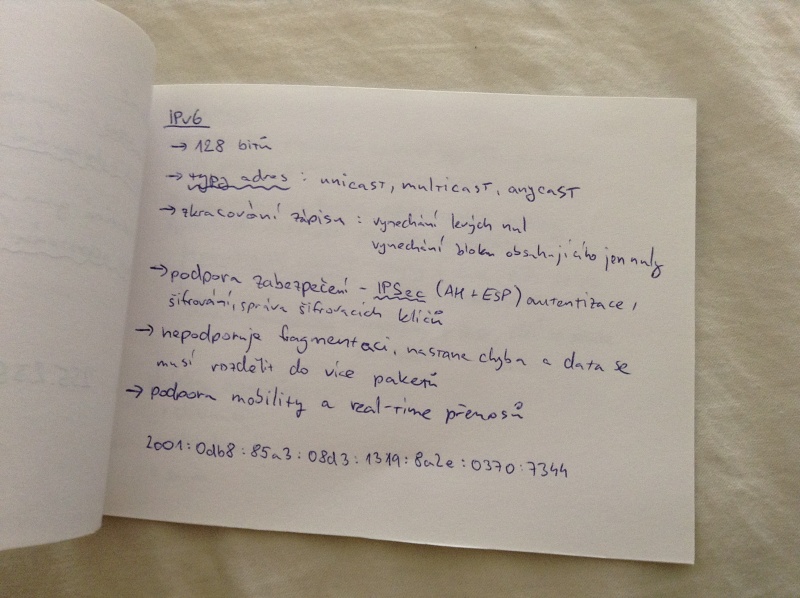 IPv6
→ 128 bitů
→ typy adres : unicast, multicast, anycast
→ zkracování zápisu : vynechání levých nul
vynechání bloku obsahujícího jen nuly
→ podpora zabezpečení - IPSec (AH + ESP) autentizace,
šifrování, správa šifrovacích klíčů
→ nepodporuje fragmentaci, nastane chyba a data se
musí rozdělit do více paketů
→ podpora mobility a real-time přenosů
2001:0db8:85a3:08d3:1319:8a2e:0370:7344